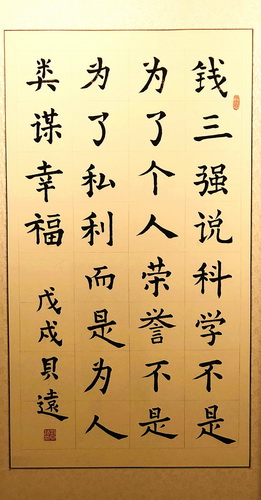 钱三强说科学不是
为了个人荣誉不是
为了私利而是为人
类谋幸福
戊戌贝遠